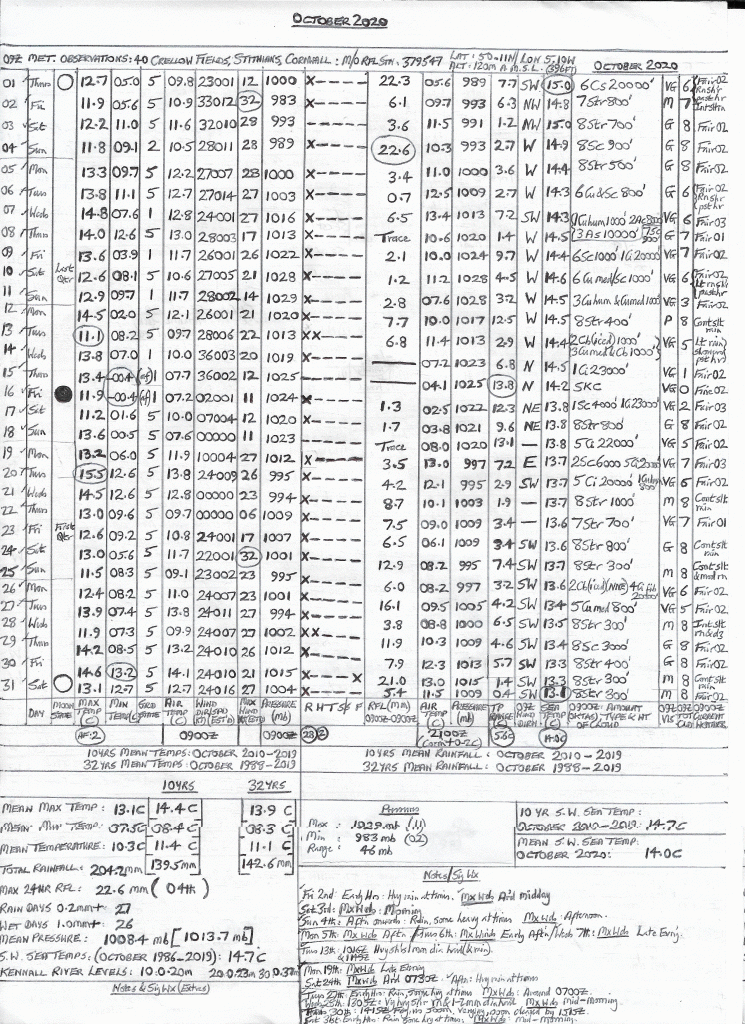 OCTOBER 2020
09Z MET. OBSERVATIONS: 40 CRELLOW FIELDS, STITHIANS, CORNWALL: M/O RFL STN. 379547 LAT: 50.11N LON 5.10W ALT: 120m A.M.S.L. (396FT) OCTOBER 2020
01 Thur 12.7 05.0 5 09.8 23001 12 1000 X----- 22.3 05.6 989 7.7 SW 15.0 6Cs20000' VG 6 Fair 02
02 Fri 11.9 05.6 5 10.9 33012 32 983 X----- 6.1 09.7 993 6.3 NW 14.8 7Str800' M 7
03 Sat 12.2 11.0 5 11.6 32010 28 993 ------ 3.6 11.5 991 1.2 NW 15.0 8Str700' G 8 Fair 02
04 Sun 11.8 09.1 2 10.5 28011 28 989 X----- 22.6 10.3 993 2.7 W 14.9 8Sc900' G 8 Fair 02
05 Mon 13.3 09.7 5 12.2 27007 28 1000 X----- 3.4 11.0 1000 3.6 W 14.4 8Str500' G 8 Fair 02
06 Tues 13.8 11.1 5 12.7 27014 27 1003 X----- 0.7 12.5 1009 2.7 W 14.3 6Cu&Sc800' G 6
07 Wed 14.8 07.6 1 12.8 24001 27 1016 X----- 6.5 13.4 1013 7.2 SW 14.3 VG 6 Fair 03
08 Thur 14.0 12.6 5 13.0 28003 17 1013 X----- Trace 10.6 1020 1.4 W 14.5 3As10000' G 7 Fair 01
09 Fri 13.6 03.9 1 11.7 26001 26 1022 X----- 2.1 10.0 1024 9.7 W 14.4 6Sc1000' 1Ci20000' VG 7 Fair 02
10 Sat Last Qtr 12.6 08.1 5 10.6 27005 21 1028 X----- 1.2 11.2 1028 4.5 W 14.6 6Cumed/Sc1000' VG 6
11 Sun 12.9 09.7 1 11.7 28002 14 1029 X----- 2.8 07.6 1028 3.2 W 14.5 3Cuhum&Cumed1000' VG 3 Fair 02
12 Mon 14.5 02.0 5 12.1 26001 21 1020 X----- 7.7 10.0 1017 12.5 W 14.5 8Str400' P 8 Contslt rain
13 Tues 11.1 08.2 5 09.7 28006 22 1013 XX---- 6.8 11.4 1013 2.9 W 14.4 VG 5
14 Wed 13.8 07.0 1 10.0 36003 20 1019 X----- 07.2 1023 6.8 N 14.5 1Ci23000' VG 1 Fair 02
15 Thur 13.4 -00.4 1 07.7 36002 12 1025 X----- 04.1 1025 13.8 N 14.2 SKC VG 0 Fine 02
16 Fri 11.9 -00.4 1 07.2 02001 11 1024 X----- 1.3 02.5 1022 12.3 NE 13.8 1Sc4000' 1Ci23000' VG 2 Fair 03
17 Sat 11.2 01.6 5 10.0 07004 12 1020 X----- 1.7 03.8 1021 9.6 NE 13.8 8Str800' G 8 Fair 02
18 Sun 13.6 00.5 5 07.6 00000 11 1023 Trace 08.0 1020 13.1 — 13.8 5Ci22000' VG 5 Fair 02
19 Mon 13.2 06.0 5 11.9 10004 27 1012 X----- 3.5 13.0 997 7.2 E 13.7 VG 7 Fair 03
20 Tues 15.5 12.6 5 13.8 24009 26 995 X----- 4.2 12.1 995 2.9 SW 13.7 5Ci20000' VG 6 Fair 02
21 Wed 14.5 12.6 5 12.8 00000 23 994 X----- 8.7 10.1 1003 1.9 — 13.7 8Str1000' M 8 Contslt rain
22 Thur 13.0 09.6 5 09.7 00000 06 1009 X----- 7.5 09.0 1009 3.4 — 13.6 7Str700' VG 7 Fair 01
23 Fri First Qtr 12.6 09.2 5 10.8 24001 17 1007 X----- 6.5 06.1 1009 3.4 SW 13.6 8Str800' G 8 Contslt rain
24 Sat 13.0 05.6 5 11.7 22001 32 1001 X----- 12.9 08.2 995 7.4 SW 13.7 8Str300' M 8
25 Sun 11.5 08.3 5 09.1 23002 23 995 X----- 6.0 08.2 997 3.2 SW 13.6 VG 6 Fair 02
26 Mon 12.4 08.2 5 11.0 24007 23 1001 X----- 16.1 09.5 1005 4.2 SW 13.4 5Cumed800' VG 5 Fair 02
27 Tues 13.9 07.4 5 13.8 24011 27 994 X----- 3.8 08.8 1000 6.5 SW 13.5 8Str300' M 8
28 Wed 11.9 07.3 5 09.9 24007 27 1002 XX---- 11.9 10.3 1009 4.6 SW 13.4 8Sc300' G 8 Fair 02
29 Thur 14.2 08.5 5 13.2 24010 26 1012 X----- 7.9 12.3 1013 5.7 SW 13.3 8Str400' G 8 Fair 02
30 Fri 14.6 13.2 5 14.1 24010 21 1015 X----X 21.0 13.0 1015 1.4 SW 13.3 8Str300' M 8 Contslt rain
31 Sat 13.1 12.7 5 12.7 24016 27 1004 X----- 5.4 11.5 1009 0.4 SW 13.1 8Str300' M 8 Fair 02
DAY MOON STATE MAX TEMP (C) MIN TEMP (C) GRD STATE AIR TEMP (C) WIND DIR/SPD MAX WIND PRESSURE (mb) R H T S F RFL (MM) 0900Z-0900Z AIR TEMP (C) PRESSURE (mb) TP RANGE 09Z WIND DIR'N SEA TEMP (C) 0900Z: AMOUNT (OKTAS) TYPE & HT OF CLOUD 09Z VIS 0900Z TOT CLOUD 0900Z CURRENT WEATHER
AF: 2 0900Z 0900Z 28 2100Z 5.6C 14.0C
10YRS MEAN TEMPS: OCTOBER 2010-2019 10YRS MEAN RAINFALL: OCTOBER 2010-2019
32YRS MEAN TEMPS: OCTOBER 1988-2019 32YRS MEAN RAINFALL: OCTOBER 1988-2019
10YRS 32YRS
MEAN MAX TEMP: 13.1C 14.4C 13.9C
MEAN MIN TEMP: 07.5C 08.4C 08.3C
MEAN TEMPERATURE: 10.3C 11.4C 11.1C
TOTAL RAINFALL: 204.2mm 139.5mm 142.6mm
MAX 24HR RFL: 22.6mm (04th)
RAIN DAYS 0.2mm+: 27
WET DAYS 1.0mm+: 26
MEAN PRESSURE: 1008.4mb [1013.7mb]
S.W. SEA TEMP: (OCTOBER 1986-2019): 14.7C
KENNALL RIVER LEVELS: 1 0.0.20m 20 0.23m 30 0.37m
Notes & Sig Wx (Extras)
Pressure
Max : 1029mb (11)
Min : 983mb (02)
Range : 46mb
10 YR S.W. SEA TEMP:
OCTOBER 2010-2019: 14.7C
MEAN S.W. SEA TEMP:
OCTOBER 2020: 14.0C
Notes/Sig Wx
Fri 2nd: Early Hrs: Hvy rain at times. Mx Wnd: Ar'd midday
Sat 3rd: Mx Wnd: Morning
Sun 4th: Aftn onwards: Rain, some heavy at times Mx Wnd: Afternoon.
Mon 5th: Mx Wnd: Aftn / Tues 6th: Mx Wnd: Early Aftn / Wed 7th: Mx Wnd: Late Evng.
Mon 19th: Mx Wnd: Late Evning
Sat 24th: Mx Wnd: Ar'd 0730Z Aftn: Hvy rain at times
Tues 27th: Early Hrs: Rain, some hvy at times Mx Wnd: Around 0700Z
Mx Wnd: mid-morning.
Sat 31st: Early Hrs: Rain some hvy at times: Mx Wnd: Mid-morning.